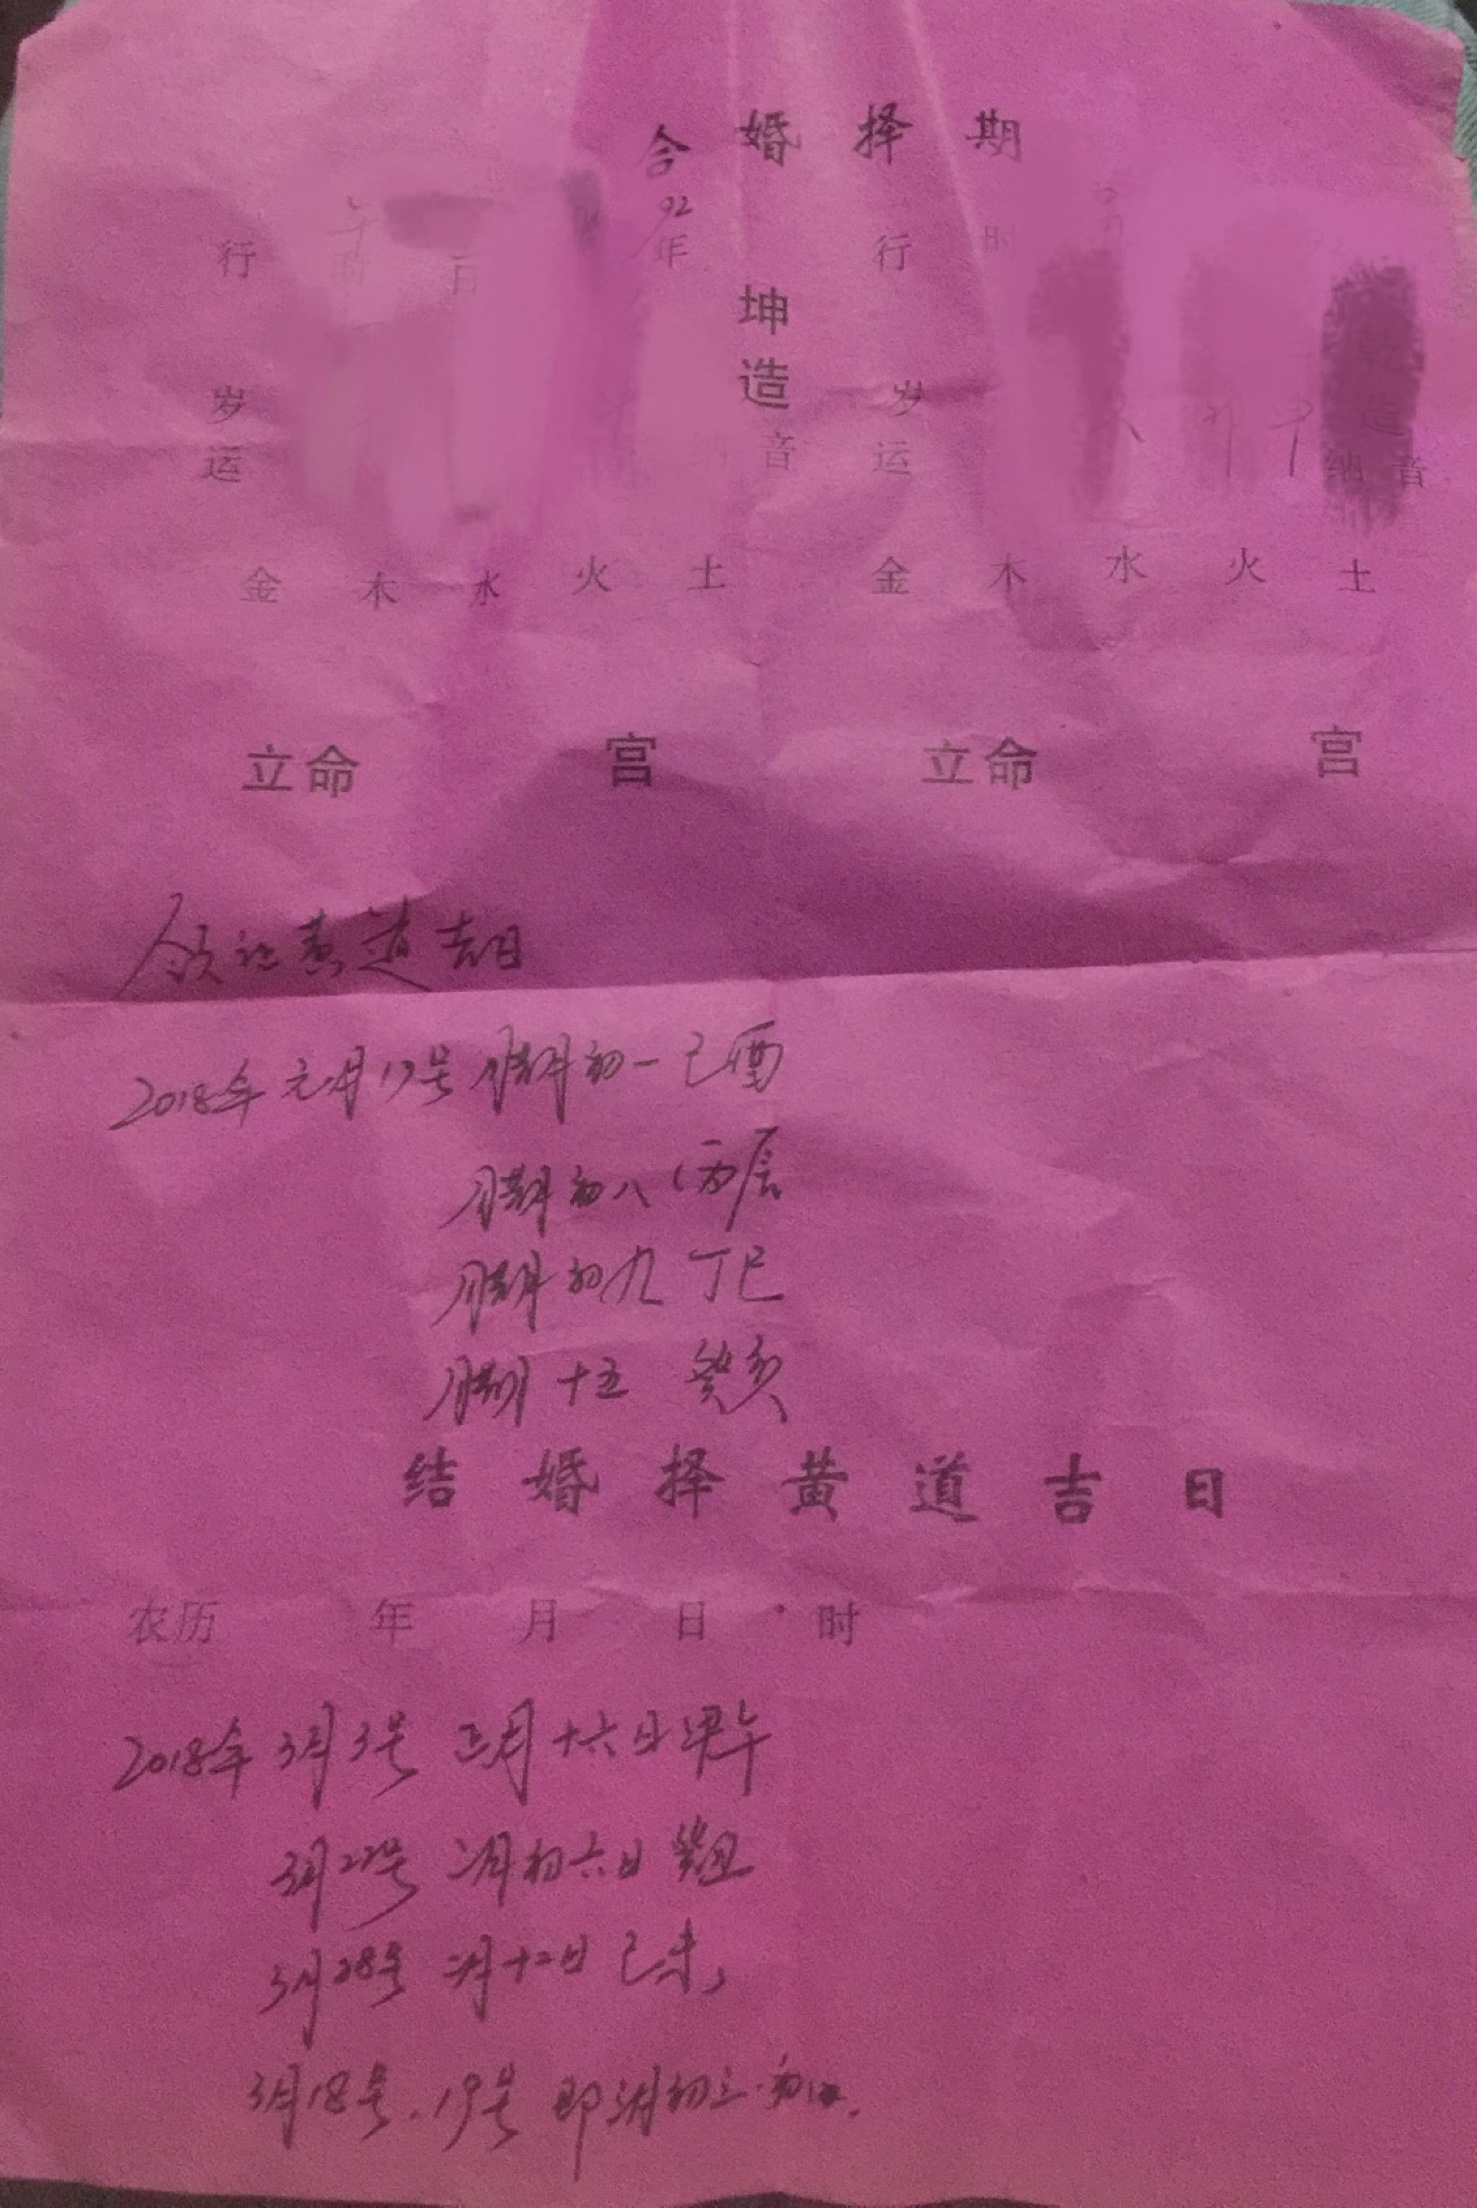 合婚择期
午 92 行 时
行 时 日 年
坤造 乾造
岁运 音 岁运 纳音
金 木 水 火 土 金 木 水 火 土
立命 宫 立命 宫
领证黄道吉日
2018年元月17号 腊月初一 己酉
腊月初八 丙辰
腊月初九 丁巳
腊月十五 癸亥
结婚择黄道吉日
农历 年 月 日 时
2018年3月3号 正月十六日 甲午
3月22号 二月初六日 癸丑
3月28号 二月十二日 己未
3月18号、19号 即二月初二、初三.